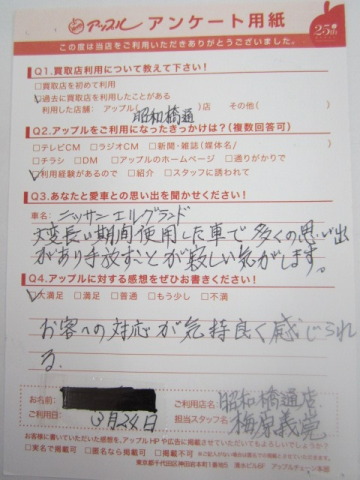 アップル アンケート用紙 25th
この度は当店をご利用いただきありがとうございました。
Q1.買取店利用について教えて下さい!
□買取店を初めて利用
☑過去に買取店を利用したことがある
利用した店舗: アップル( 昭和橋通 )店 その他( )
Q2.アップルをご利用になったきっかけは?(複数回答可)
□テレビCM □ラジオCM □新聞・雑誌(媒体名/ )
□チラシ □DM □アップルのホームページ □通りがかりで
☑利用経験があるので □紹介 □スタッフに誘われて
Q3.あなたと愛車との思い出を聞かせください!
車名: ニッサン エルグランド
大変長い期間使用した車で多くの思い出
があり手放すことが寂しい気がします。
Q4.アップルに対する感想をぜひお書きください!
☑大満足 □満足 □普通 □もう少し □不満
お客への対応が気持良く感じられ
る。
お名前:
ご利用店名: 昭和橋通店
ご利用日: 3月24日
担当スタッフ名: 梅原義嵩
お客様に書いていただいた感想を、アップルHPや広告に掲載させていただいてもよろしいでしょうか?
□実名で掲載可 □匿名なら掲載可 □掲載不可